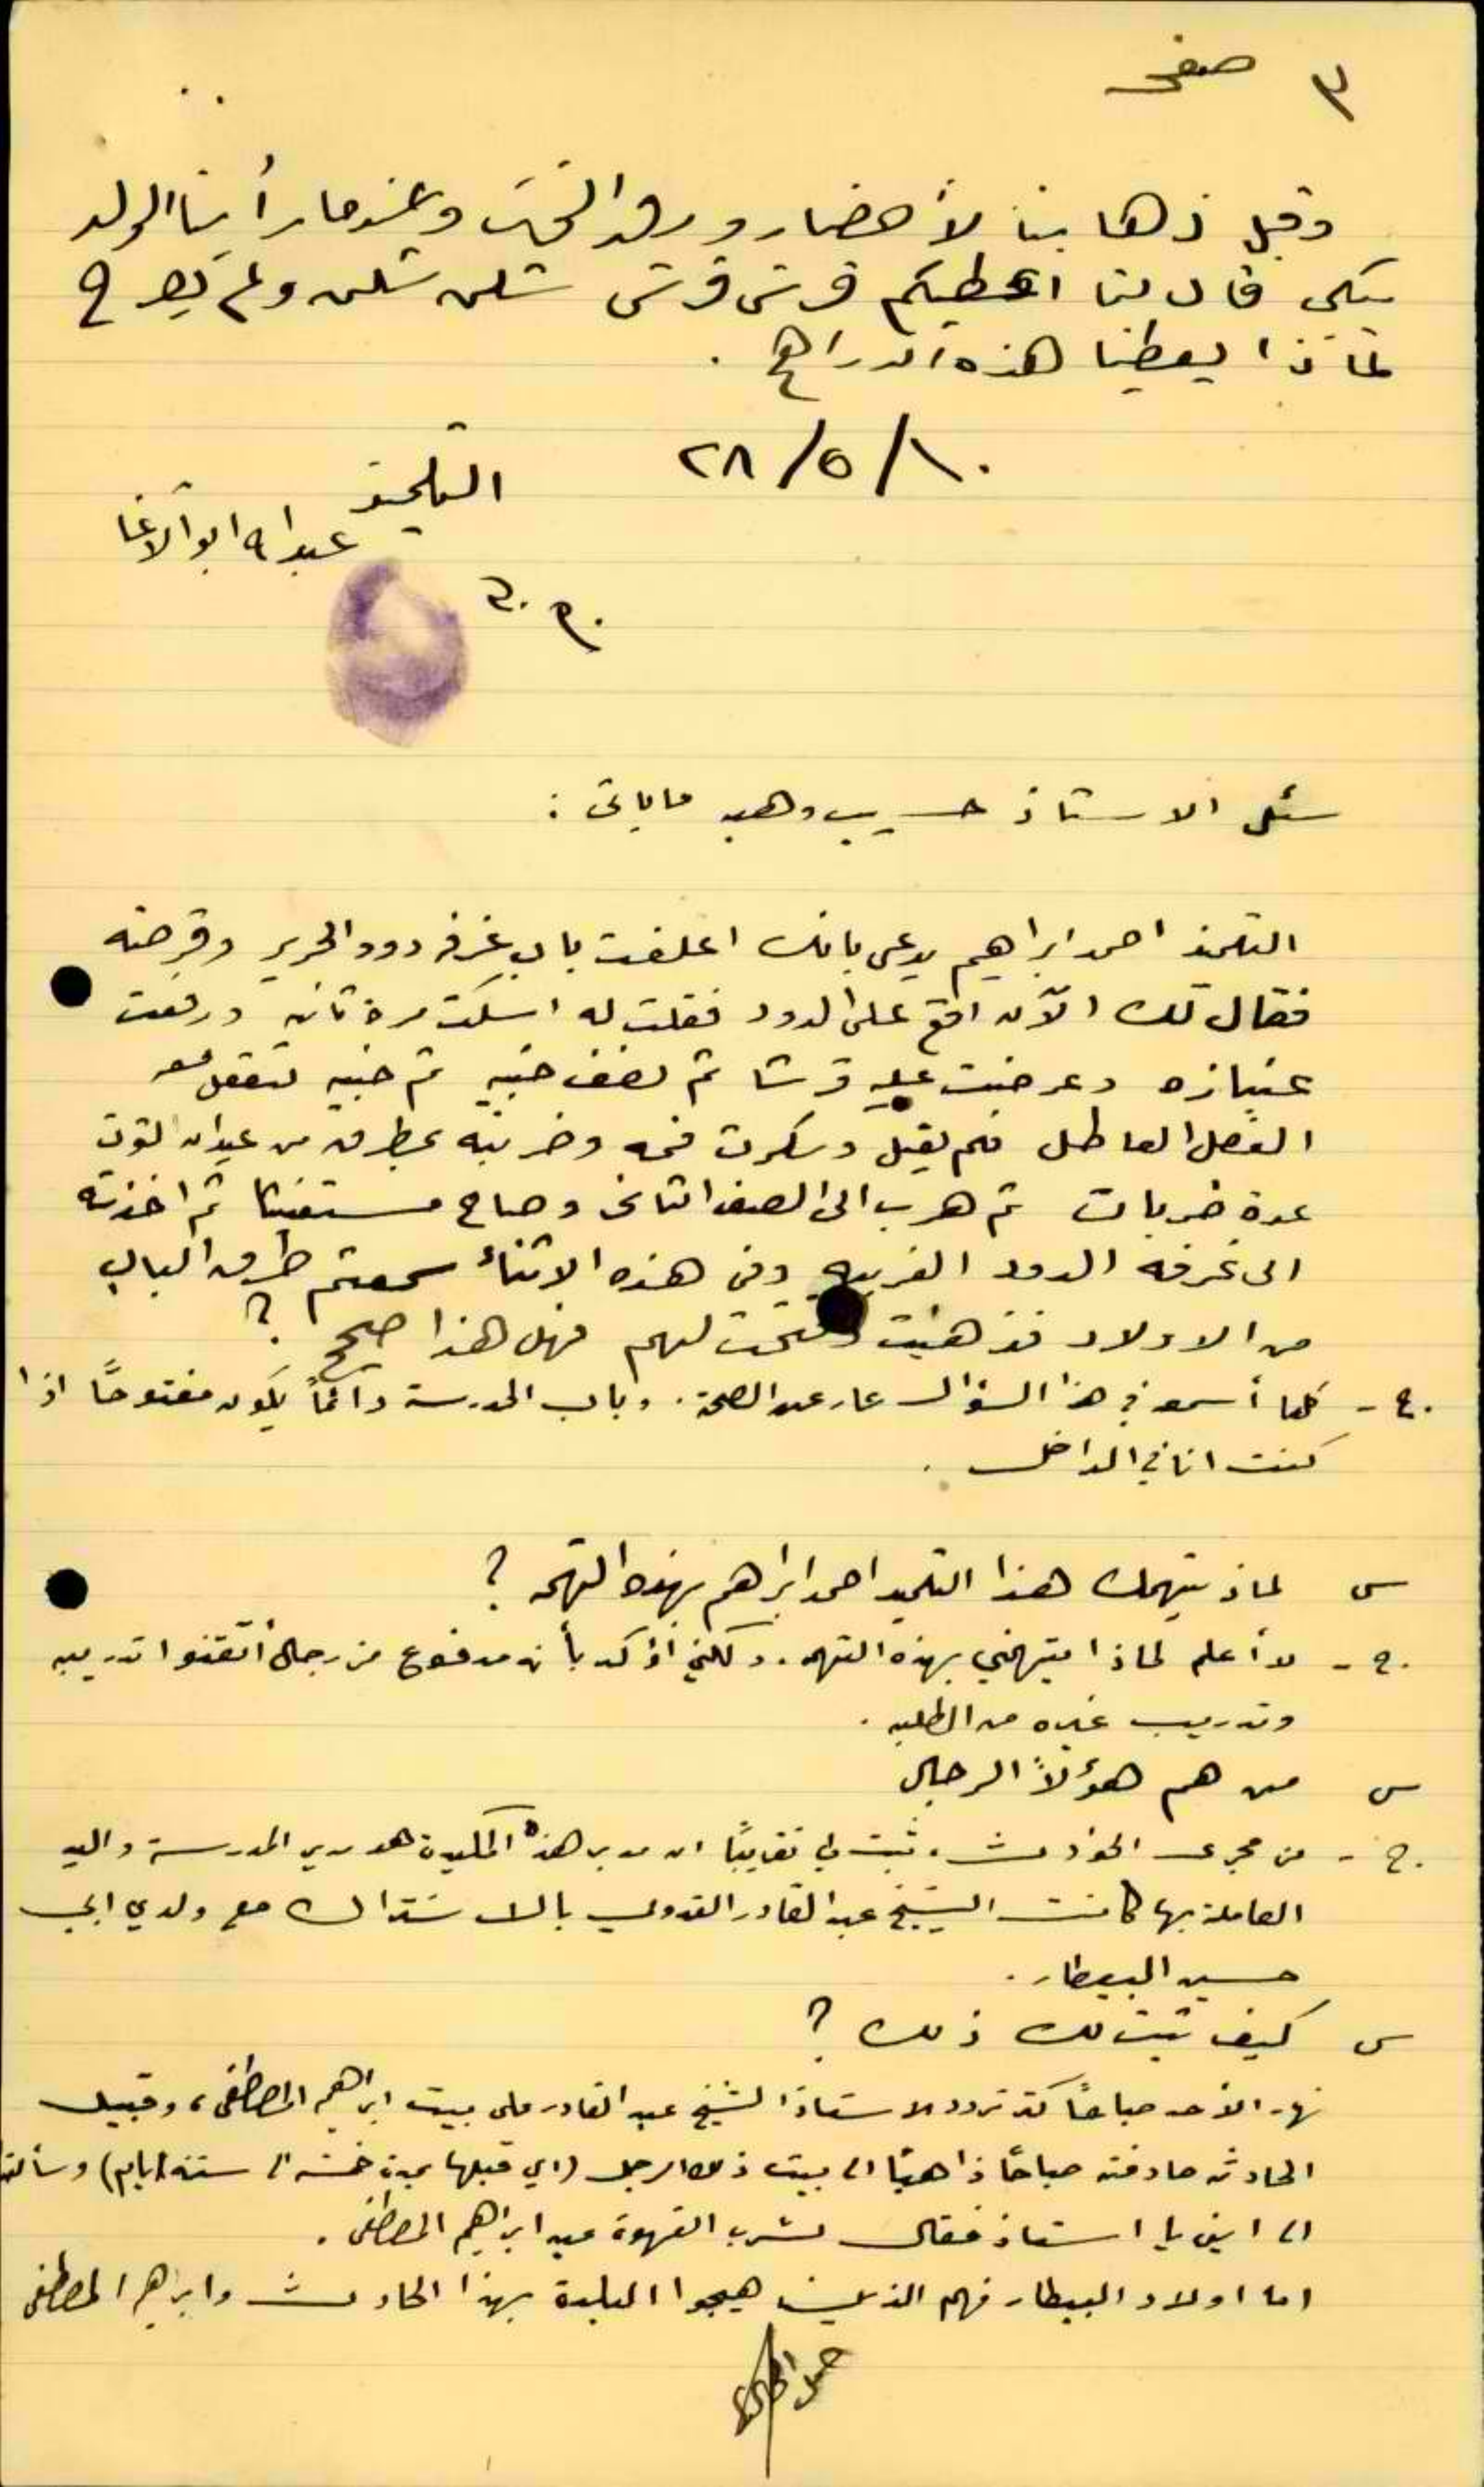 صفحه ٣
وقبل ذهابنا لأحضار ورق التوت وعندما رأينا الولد
يبكي قال لنا اعطيكم قرش قرش شلن شلن ولم يصرح
لماذا يعطينا هذه الدراهم .
٢٨/٥/١٠
التلميذ
عبد الله ابو الاغا
سئل الاستاذ حسيب وهبه ما يأتي :
التلميذ احمد ابراهيم يدعى بانك اغلقت باب غرفة دود الحرير وقرصته
فقال لك الآن اقع على الدود فقلت له اسكت مرة ثانيه ورفعت
عنبازه وعرضت عليه قرشا ثم نصف جنيه ثم جنيه لتفعل معه
الفعل العاطل فلم يقبل وسكرت فمه وضربته بمطرق من عيدان التوت
عدة ضربات ثم هرب الى الصف الثاني وصاح مستغيثا ثم اخذته
الى غرفة الدود الغربيه وفي هذه الاثناء سمعتم طرق الباب
من الاولاد فذهبت وفتحت لهم فهل هذا صحيح ؟
ج - كلما أسمعه في هذا السؤال عار عن الصحة . وباب المدرسة دائماً يكون مفتوحاً اذا
كنت انا في الداخل .
س لماذ يتهمك هذا التلميذ احمد ابراهيم بهذه التهمه ؟
ج - لا أعلم لماذا يتهمني بهذه التهمه . ولكني اؤكد بأنه مدفوع من رجال أتقنوا تدريبه
وتدريب غيره من الطلبه .
س من هم هؤلاء الرجال
ج - من مجرى الحوادث ، ثبت لي تقريباً ان مدبر هذه المكيدة هو مدير المدرسة واليد
العاملة بها كانت الشيخ عبد القادر القدومي بالاشتراك مع ولدي ابي
حسين البيطار .
س كيف ثبت لك ذلك ؟
نهار الأحد صباحاً كثر تردد الاستاذ الشيخ عبد القادر على بيت ابراهيم المصطفى ، وقبيل
الحادثه صادفته صباحاً ذاهباً الى بيت ذلك الرجل (اي قبلها بمدة خمسة الى ستة ايام) وسألته
الى اين يا استاذ فقال لشرب القهوة عند ابراهيم المصطفى .
اما اولاد البيطار فهم الذين هيجوا البلدة بهذا الحادث وابراهيم المصطفى